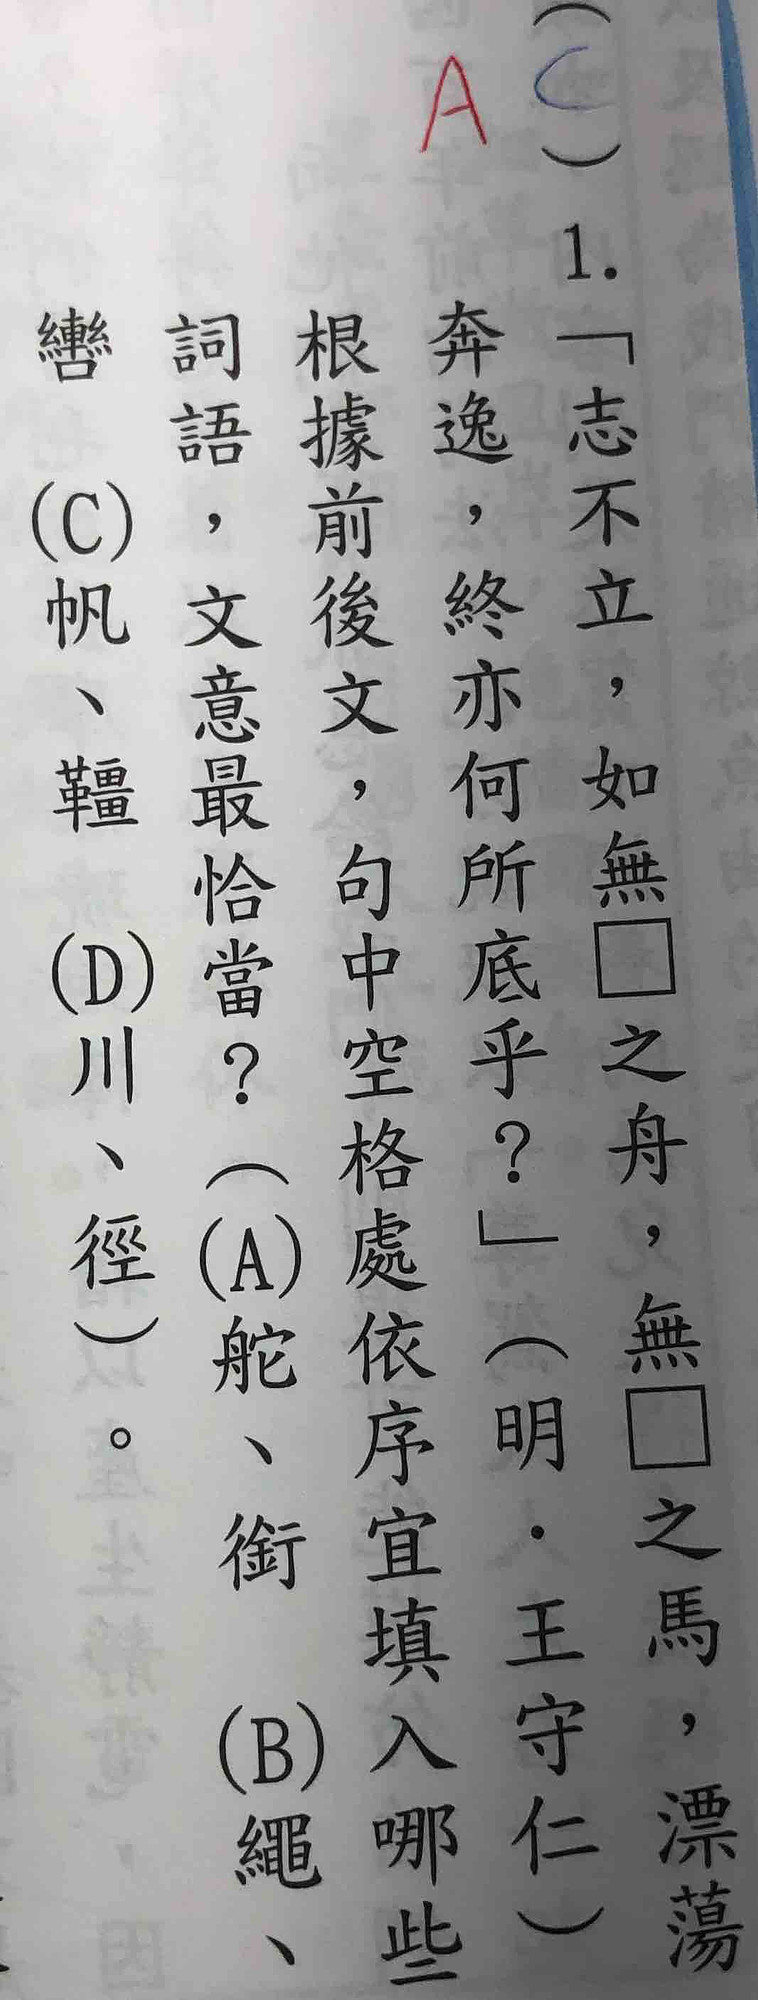 (C)1.「志不立，如無□之舟，無□之馬，漂蕩
A
奔逸，終亦何所底乎？」（明．王守仁）
根據前後文，句中空格處依序宜填入哪些
詞語，文意最恰當？（(A)舵、銜　(B)繩、
轡　(C)帆、韁　(D)川、徑）。